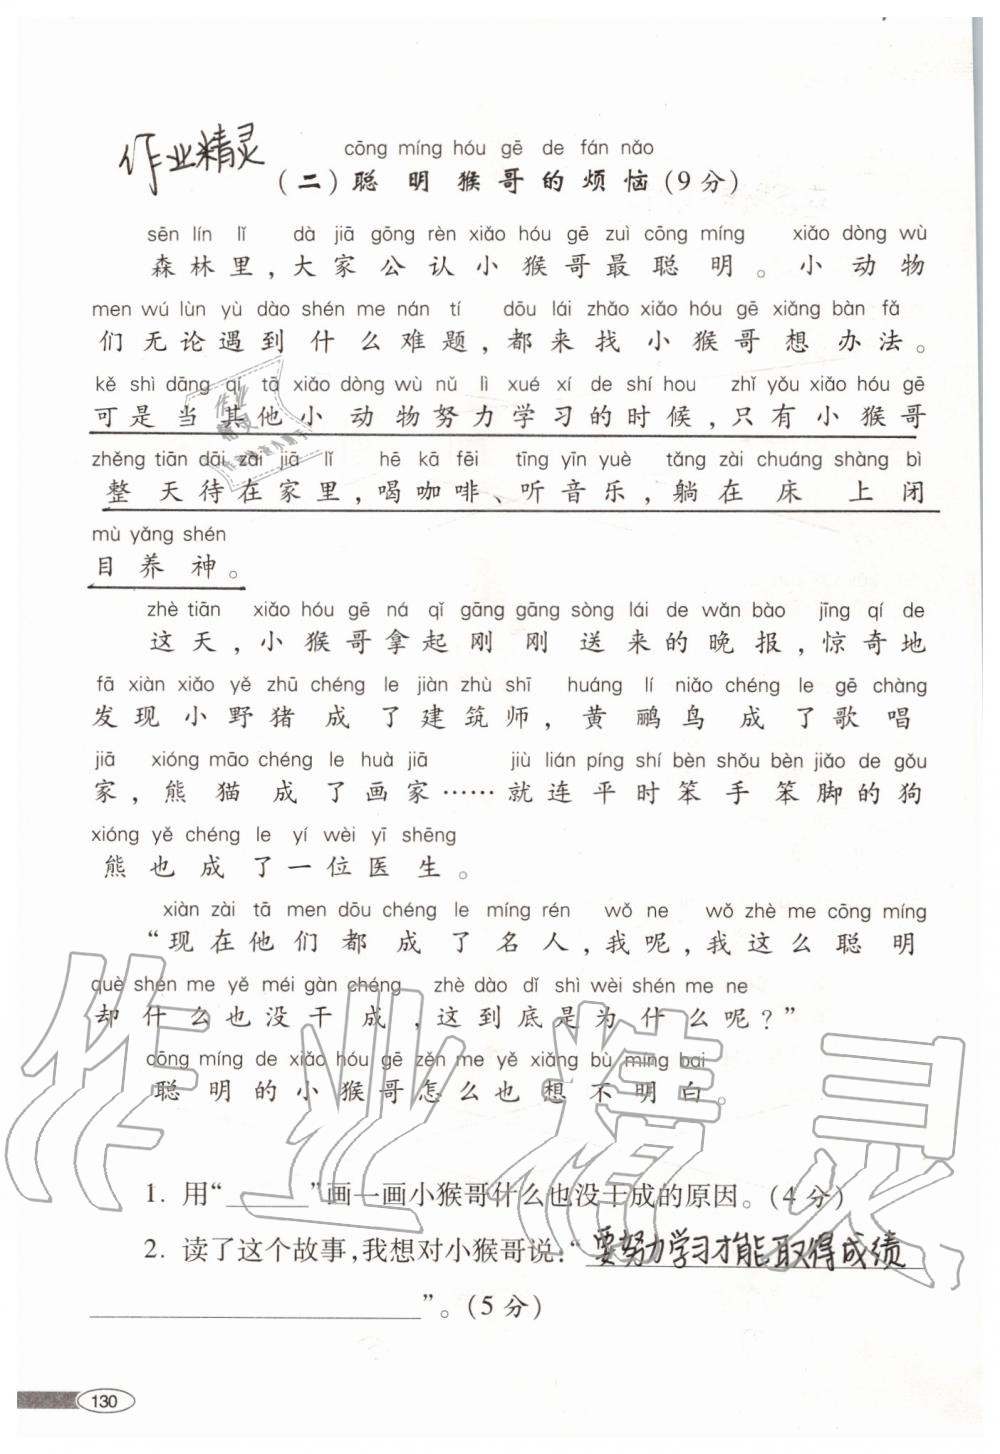 作业精灵
cōng míng hóu gē de fán nǎo
(二)聪明猴哥的烦恼(9分)
sēn lín lǐ dà jiā gōng rèn xiǎo hóu gē zuì cōng míng xiǎo dòng wù
森林里,大家公认小猴哥最聪明。小动物
men wú lùn yù dào shén me nán tí dōu lái zhǎo xiǎo hóu gē xiǎng bàn fǎ
们无论遇到什么难题,都来找小猴哥想办法。
kě shì dāng qí tā xiǎo dòng wù nǔ lì xué xí de shí hou zhǐ yǒu xiǎo hóu gē
可是当其他小动物努力学习的时候,只有小猴哥
zhěng tiān dāi zài jiā lǐ hē kā fēi tīng yīn yuè tǎng zài chuáng shàng bì
整天待在家里,喝咖啡、听音乐,躺在床上闭
mù yǎng shén
目养神。
zhè tiān xiǎo hóu gē ná qǐ gāng gāng sòng lái de wǎn bào jīng qí de
这天,小猴哥拿起刚刚送来的晚报,惊奇地
fā xiàn xiǎo yě zhū chéng le jiàn zhù shī huáng lí niǎo chéng le gē chàng
发现小野猪成了建筑师,黄鹂鸟成了歌唱
jiā xióng māo chéng le huà jiā jiù lián píng shí bèn shǒu bèn jiǎo de gǒu
家,熊猫成了画家……就连平时笨手笨脚的狗
xióng yě chéng le yí wèi yī shēng
熊也成了一位医生。
xiàn zài tā men dōu chéng le míng rén wǒ ne wǒ zhè me cōng míng
“现在他们都成了名人,我呢,我这么聪明
què shén me yě méi gàn chéng zhè dào dǐ shì wèi shén me ne
却什么也没干成,这到底是为什么呢?”
cōng míng de xiǎo hóu gē zěn me yě xiǎng bù míng bai
聪明的小猴哥怎么也想不明白。
1. 用“______”画一画小猴哥什么也没干成的原因。(4分)
2. 读了这个故事,我想对小猴哥说:“要努力学习才能取得成绩
______”。(5分)
130
作业精灵